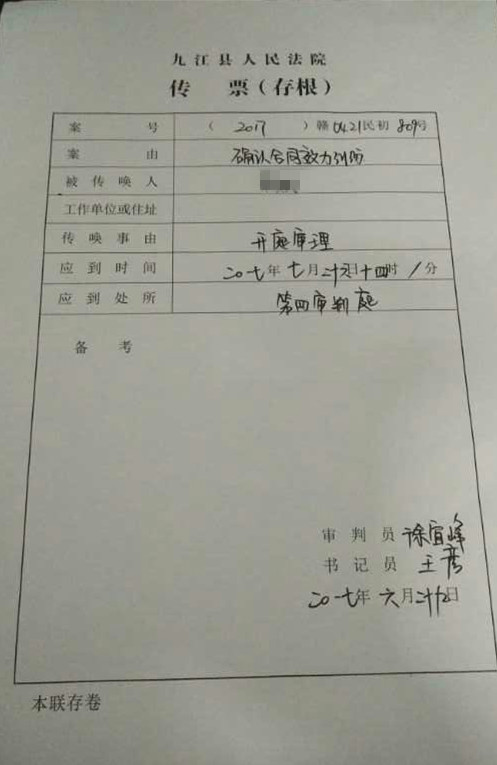 九江县人民法院
传 票（存根）
案 号 （ 2017 ）赣0421民初 809号
案 由 确认合同效力纠纷
被传唤人
工作单位或住址
传唤事由 开庭审理
应到时间 二〇一七年 七月 日十四时 / 分
应到处所 第四审判庭
备 考
审判员 徐宜峰
书记员 王彦
二〇一七年 六月二十九日
本联存卷